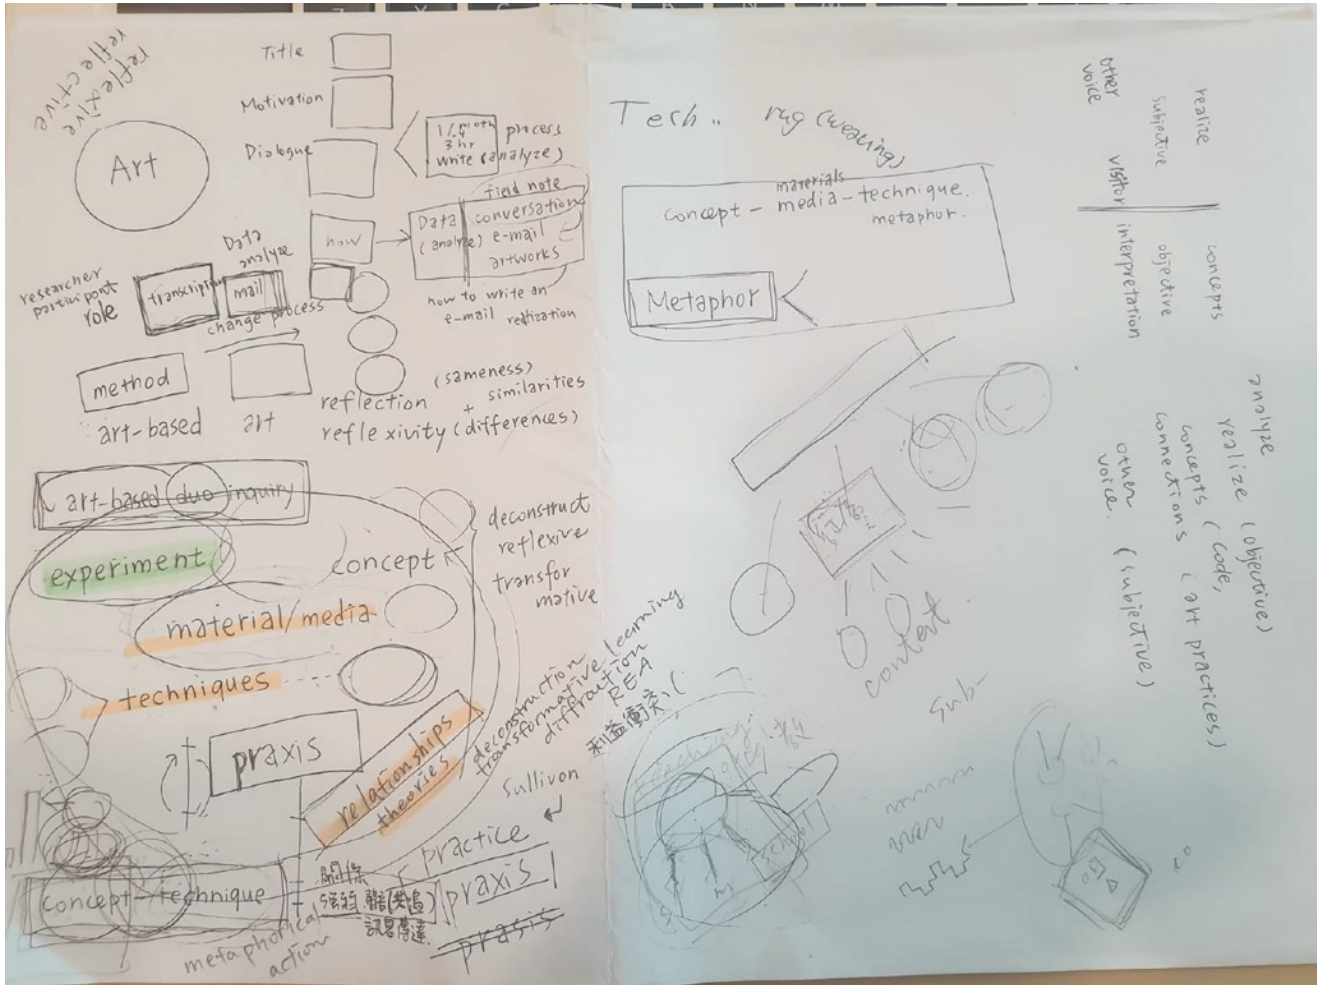 reflective
reflexive
Art
Title
Motivation
Dialogue
3 hr
write (analyze)
process
how
Data
(analyze)
field note
conversation
e-mail
artworks
how to write an
e-mail
realization
researcher
participant
role
transcription
Data
analyze
mail
change process
method
art-based
art
reflection
reflexivity (differences)
(sameness)
+ similarities
art-based duo inquiry
experiment
concept
material/media
techniques
praxis
relationships
theories
deconstruct
reflexive
transfor
mative
deconstruction
transformative learning
diffraction
REA
利益衝突
Sullivan
practice
praxis
prasis
concept - technique
metaphorical
action
關係
訊息傳達
Tech..
rug (weaving)
materials
concept - media - technique.
metaphor.
Metaphor
context
sub-
teaching
school
other
voice
subjective
realize
visitor
interpretation
objective
concepts
analyze
realize (objective)
concepts (code,
connections (art practices)
other
voice. (subjective)